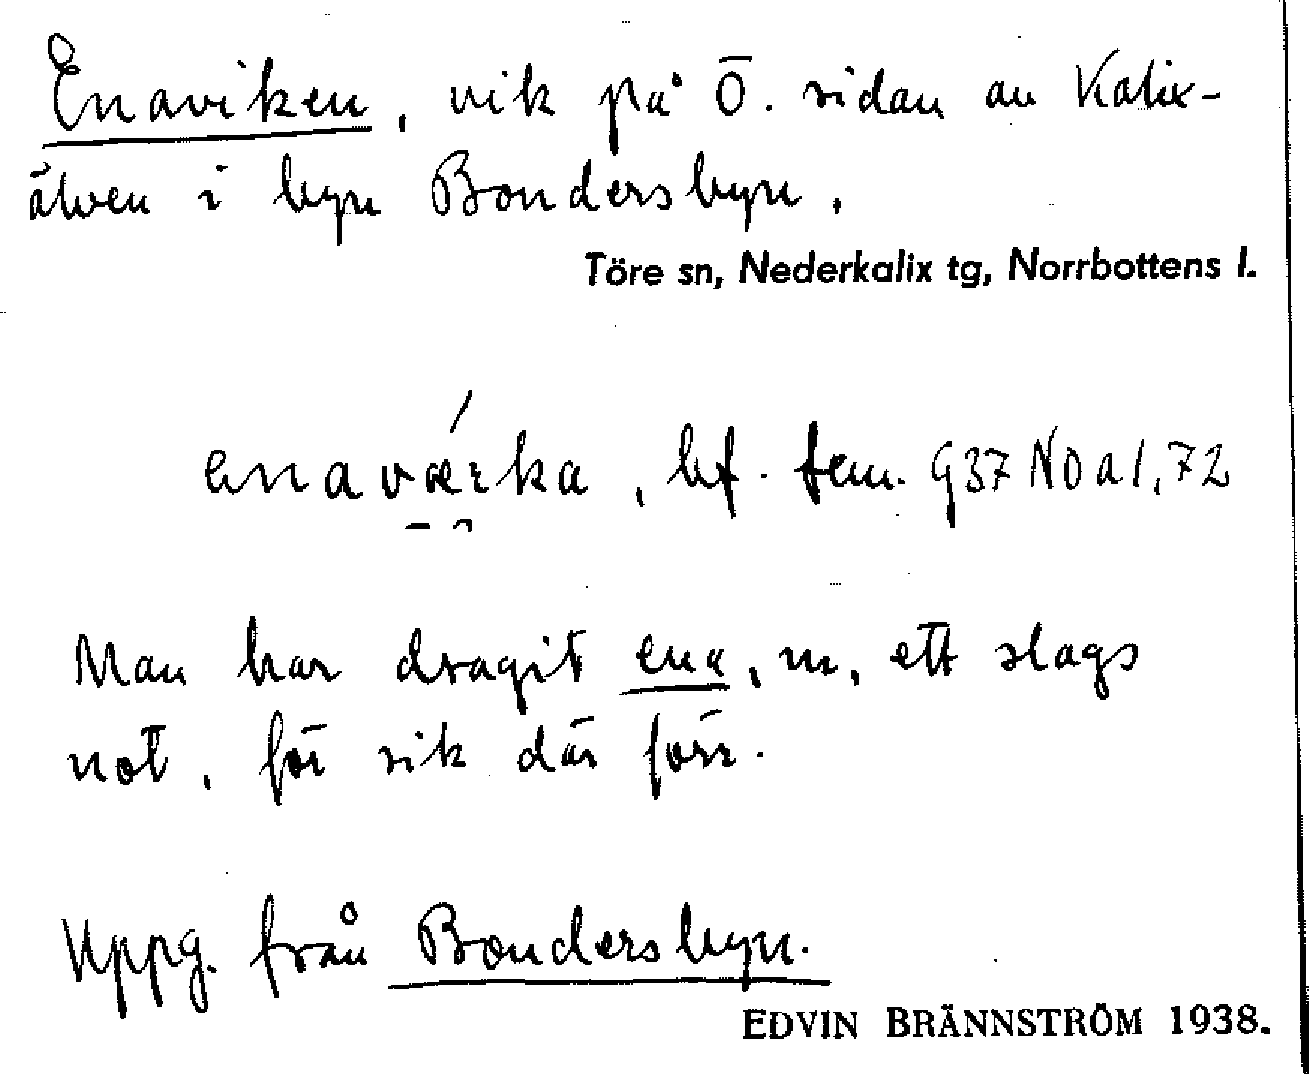 Enaviken, vik på Ö. sidan av Kalix-
älven i byn Bondersbyn.
Töre sn, Nederkalix tg, Norrbottens l.
enavǽrka, bf. fem. G37 NO a 1, 72
Man har dragit ena, m, ett slags
not, för sik där förr.
Uppg. från Bondersbyn.
EDVIN BRÄNNSTRÖM 1938.